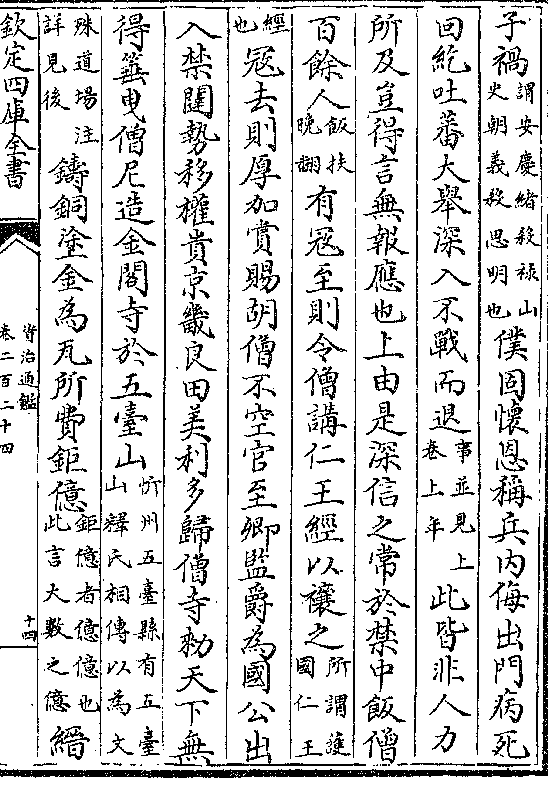 子禍謂安慶緒殺祿山史朝義殺思明也僕固懷恩稱兵内侮出門病死
回紇吐蕃大舉深入不戰而退事並見上卷上年此皆非人力
所及豈得言無報應也上由是深信之常於禁中飯僧
百餘人飯扶晚翻有冦至則令僧講仁王經以禳之所謂護國仁王
經也冦去則厚加賞賜胡僧不空官至卿監爵為國公出
入禁闥勢移權貴京畿良田美利多歸僧寺勑天下無
得箠曳僧尼造金閣寺於五臺山忻州五臺縣有五臺山釋氏相傳以為文
殊道場注詳見後鑄銅塗金為瓦所費鉅億鉅億者億億也此言大數之億縉
欽定四庫全書
資治通鑑
卷二百二十四
十四